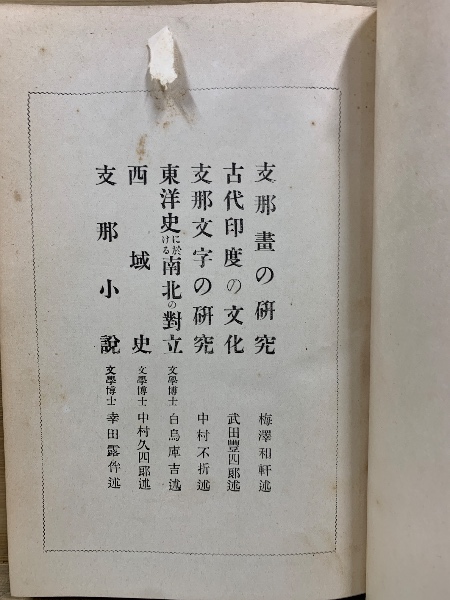 支那畫の研究 梅澤和軒述
古代印度の文化 武田豐四郎述
支那文字の研究 中村不折述
東洋史に於ける南北の對立 文學博士 白鳥庫吉述
西域史 文學博士 中村久四郎述
支那小說 文學博士 幸田露伴述